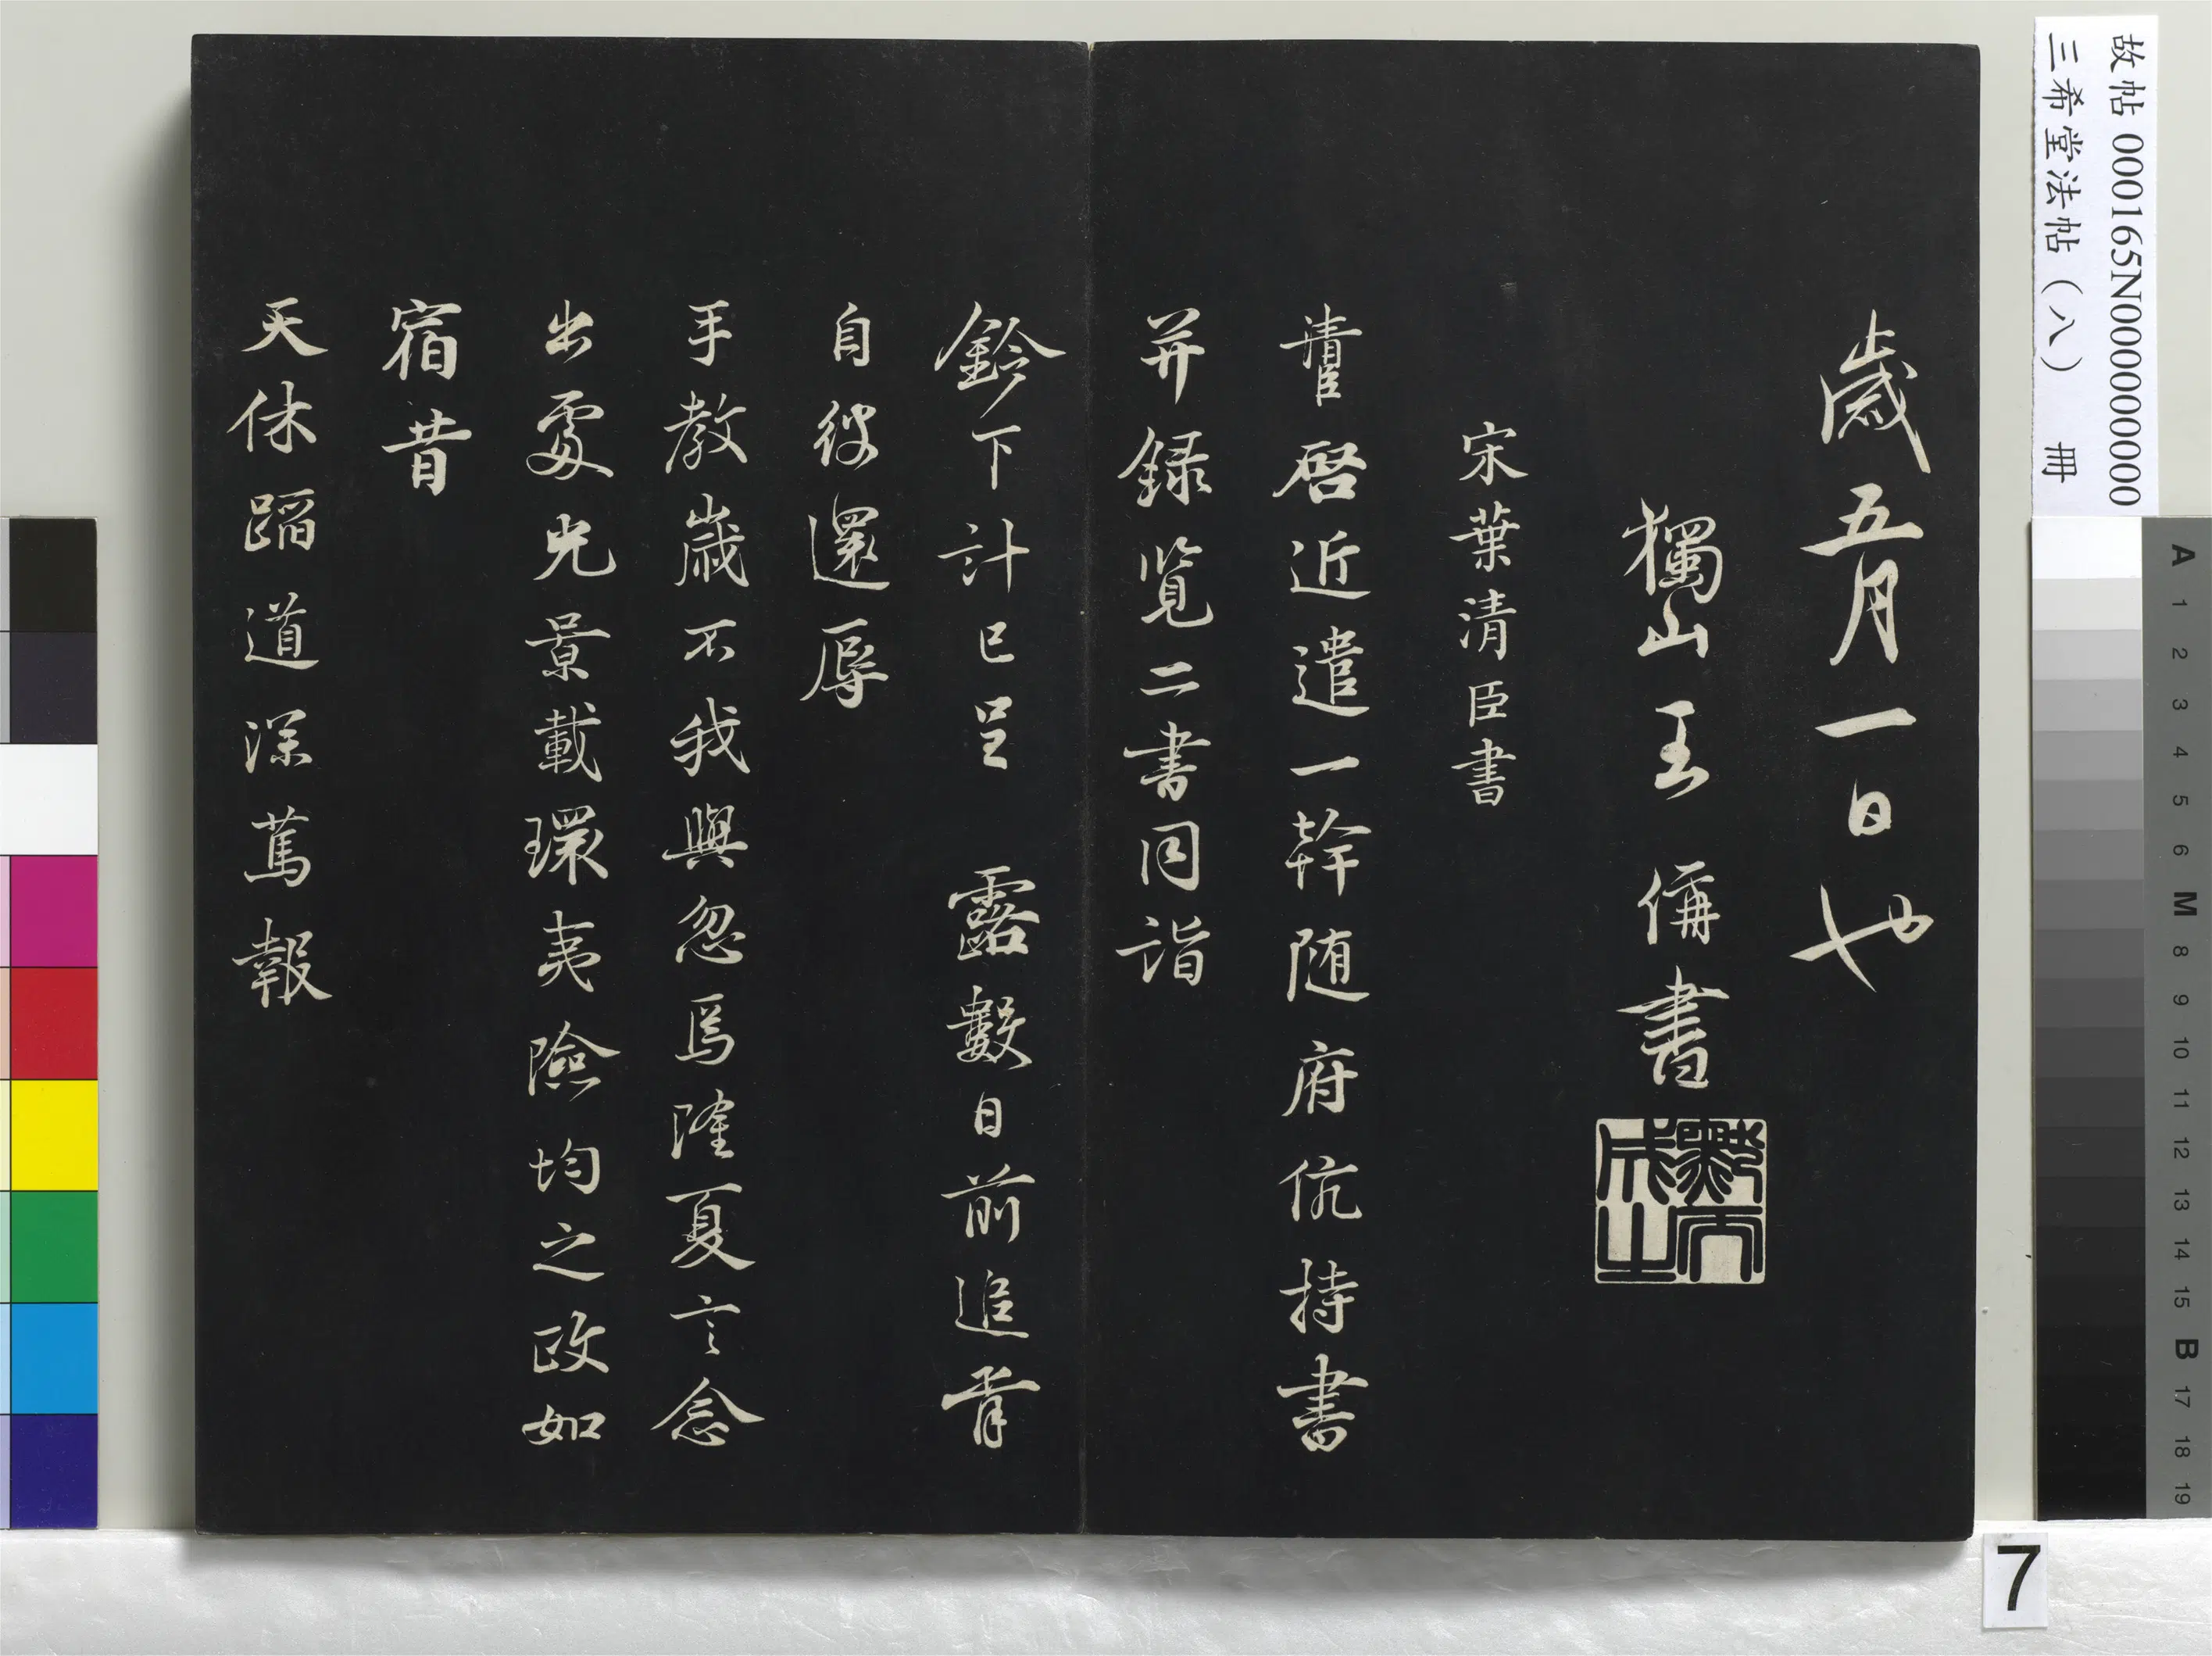 歲五月一日也
獨山王俑書
宋葉清臣書
清臣啓近遣一幹随府伉持書
并録覧二書同詣
鈴下計已呈 露數日前追胥
自彼還辱
手教歲不我與忽焉隆夏言念
出處光景載環夷險均之政如
宿昔
天休蹈道深萬報
故帖 000165N000000000
三希堂法帖（八） 冊
A 1 2 3 4 5 6 M 8 9 10 11 12 13 14 15 B 17 18 19
7